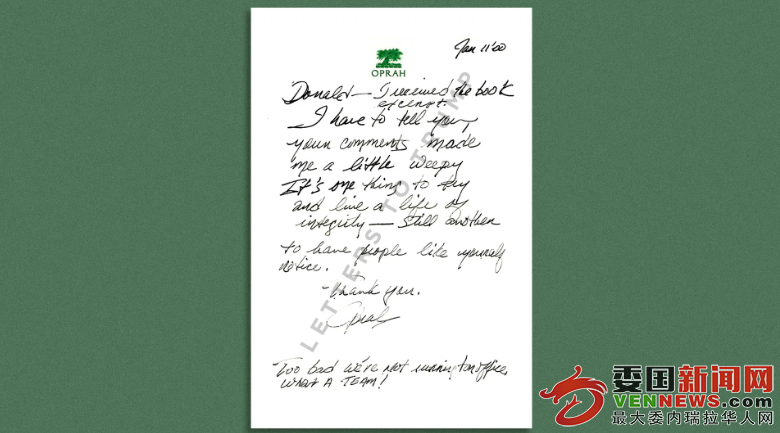 Jan 11'00
OPRAH
Donald— I received the book
excerpt.
I have to tell you,
your comments made
me a little weepy
It's one thing to try
and live a life of
integrity — still another
to have people like yourself
notice.
Thank you.
Oprah
Too bad we're not running for office.
WHAT A TEAM!
LETTERS TO TRUMP
委国新闻网
VENNEWS.COM
最大委内瑞拉华人网